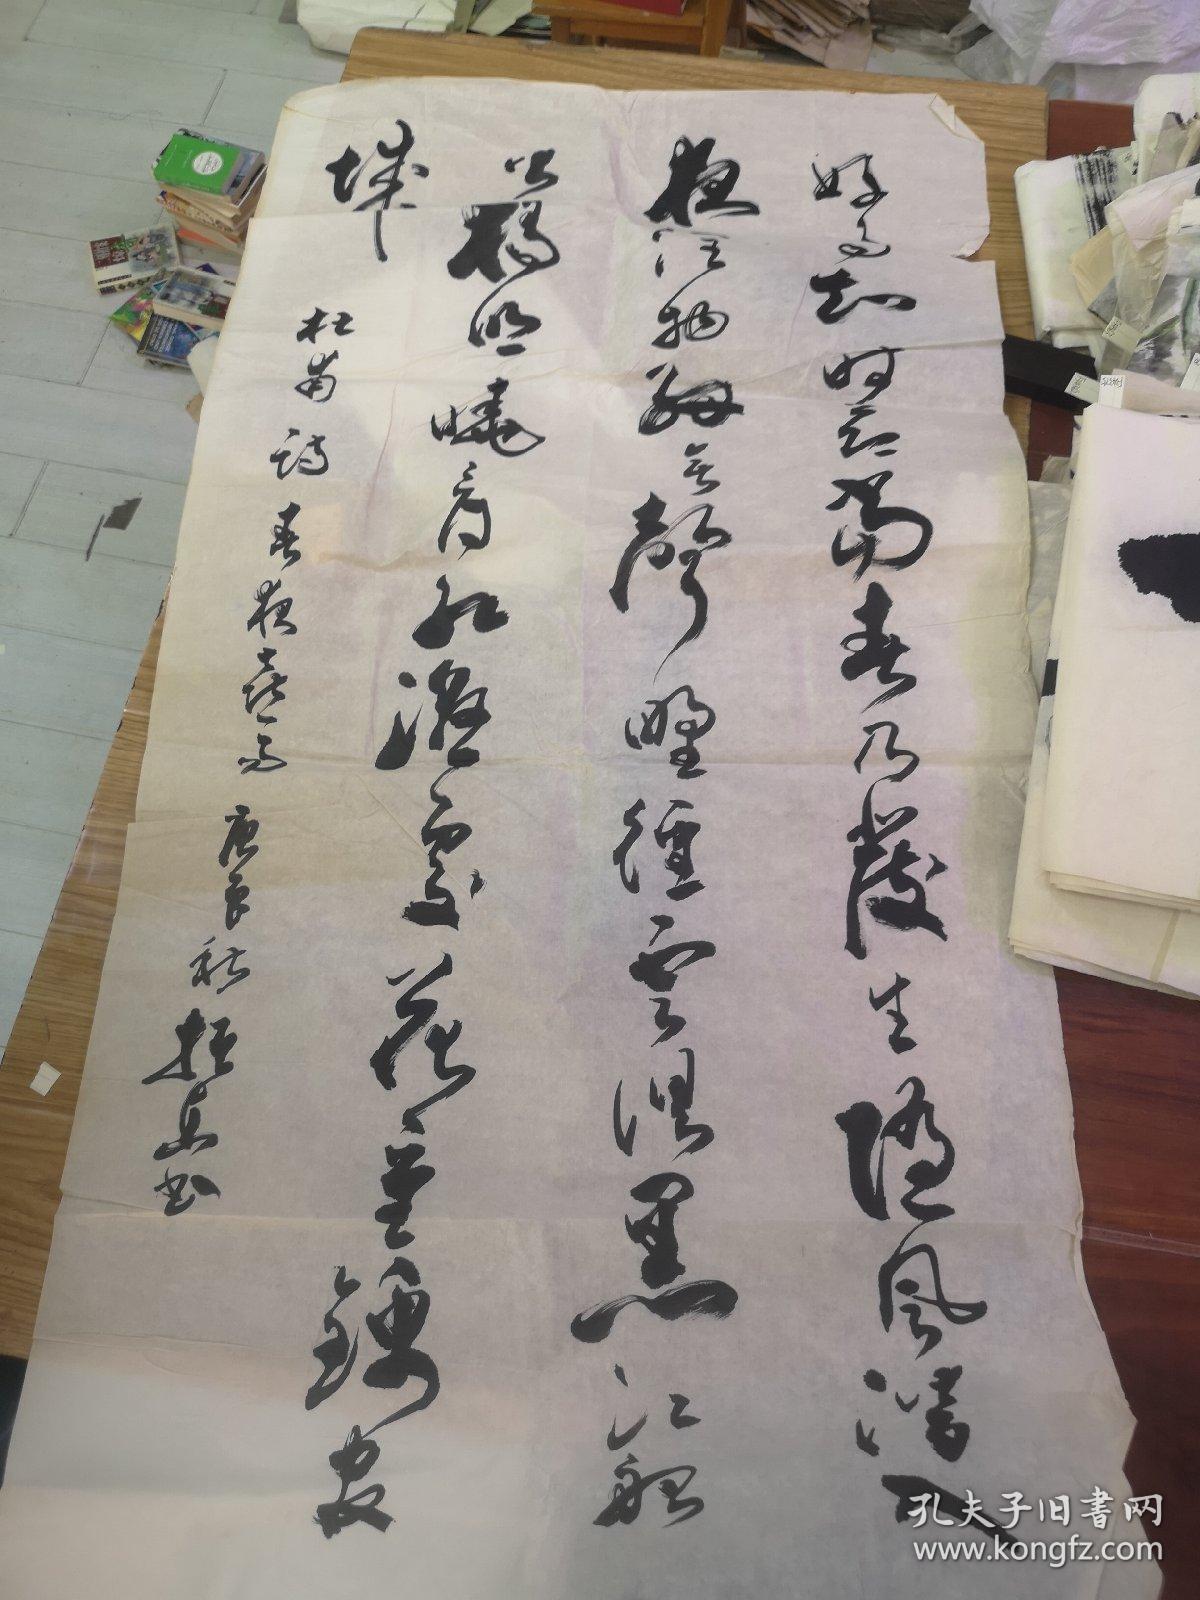 好雨知时节當春乃發生隨風潛入
夜润物細無聲野徑雲俱黑江船
火獨明曉看紅濕處花重錦官
城
杜甫詩春夜喜雨 庚辰秋 振书
孔夫子旧书网
www.kongfz.com